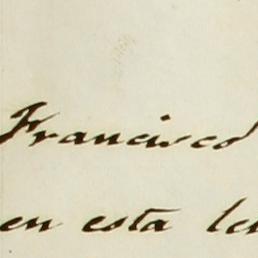 Francisco
en esta